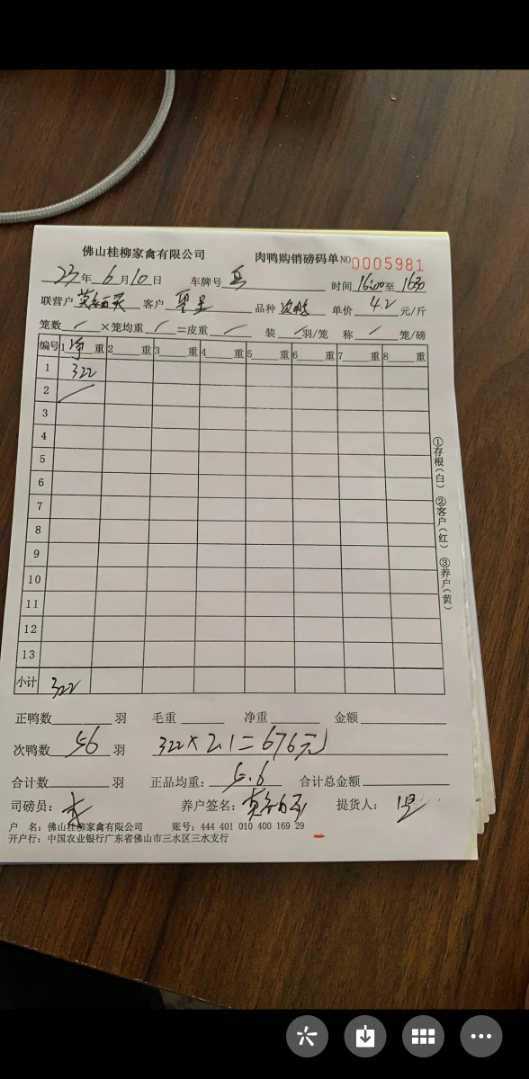 佛山桂柳家禽有限公司 肉鸭购销磅码单 NO 0005981
23年 6月10日 车牌号 时间 16:00 至 1630
联营户 客户 品种 次鸭 单价 4.2 元/斤
笼数 ×笼均重 =皮重 装 羽/笼 称 笼/磅
编号 1 净 重 2 重 3 重 4 重 5 重 6 重 7 重 8 重
1 322
2
3
4
5
6
7
8
9
10
11
12
13
小计 322
正鸭数 羽 毛重 净重 金额
次鸭数 56 羽 322×2.1=676元
合计数 羽 正品均重: 5.6 合计总金额
司磅员: 养户签名: 提货人:
户 名: 佛山桂柳家禽有限公司 账号: 444 401 010 400 169 29
开户行: 中国农业银行广东省佛山市三水区三水支行
①存根(白) ②客户(红) ③养户(黄)